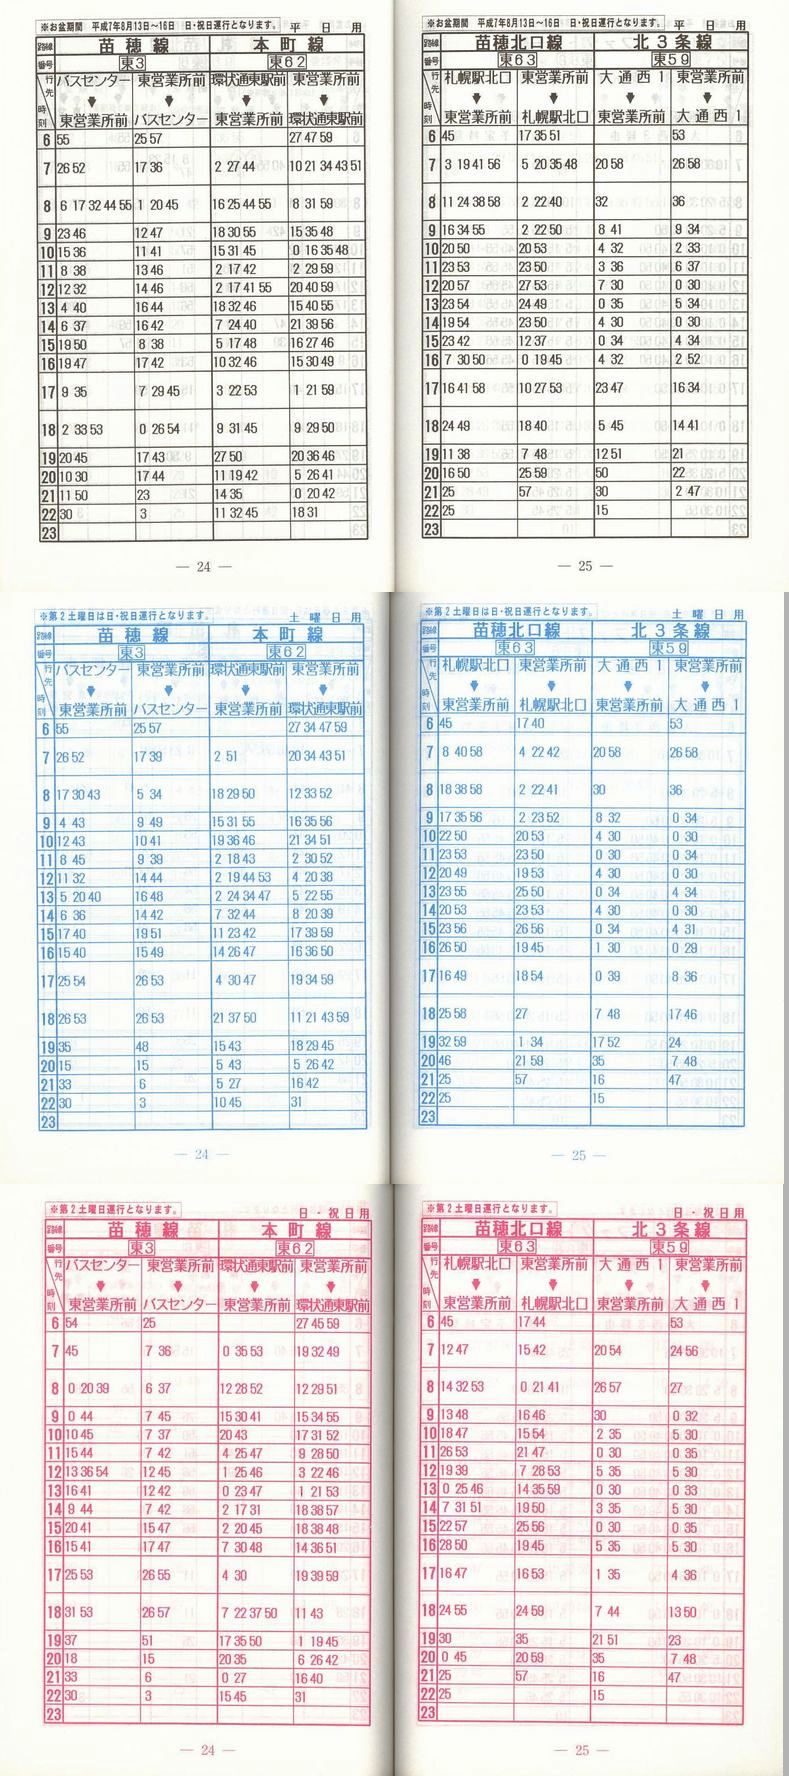 ※お盆期間 平成7年8月13日～16日 日・祝日運行となります。 平 日 用
路線 苗穂線 本町線
番号 東3 東62
行先 バスセンター 東営業所前 環状通東駅前 東営業所前
時刻 東営業所前 バスセンター 東営業所前 環状通東駅前
6 55 25 57 27 47 59
7 26 52 17 36 2 27 44 10 21 34 43 51
8 6 17 32 44 55 1 20 45 16 25 44 55 8 31 59
9 23 46 12 47 18 30 55 15 35 48
10 15 36 11 41 15 31 45 0 16 35 48
11 8 38 13 46 2 17 42 2 29 59
12 12 32 14 46 2 17 41 55 20 40 59
13 4 40 16 44 18 32 46 15 40 55
14 6 37 16 42 7 24 40 21 39 56
15 19 50 8 38 5 17 48 16 27 46
16 19 47 17 42 10 32 46 15 30 49
17 9 35 7 29 45 3 22 53 1 21 59
18 2 33 53 0 26 54 9 31 45 9 29 50
19 20 45 17 43 27 50 20 36 46
20 10 30 17 44 11 19 42 5 26 41
21 11 50 23 14 35 0 20 42
22 30 3 11 32 45 18 31
23
— 24 —
※お盆期間 平成7年8月13日～16日 日・祝日運行となります。 平 日 用
路線 苗穂北口線 北3条線
番号 東63 東59
行先 札幌駅北口 東営業所前 大通西1 東営業所前
時刻 東営業所前 札幌駅北口 東営業所前 大通西1
6 45 17 35 51 53
7 3 19 41 56 5 20 35 48 20 58 26 58
8 11 24 38 58 2 22 40 32 36
9 16 34 55 2 22 50 8 41 9 34
10 20 50 20 53 4 32 2 33
11 23 53 23 50 3 36 6 37
12 20 57 27 53 7 30 0 30
13 23 54 24 49 0 35 5 34
14 19 54 23 50 4 30 0 30
15 23 42 12 37 0 34 4 34
16 7 30 50 0 19 45 4 32 2 52
17 16 41 58 10 27 53 23 47 16 34
18 24 49 18 40 5 45 14 41
19 11 38 7 48 12 51 21
20 16 50 25 59 50 22
21 25 57 30 2 47
22 25 15
23
— 25 —
※第2土曜日は日・祝日運行となります。 土 曜 日 用
路線 苗穂線 本町線
番号 東3 東62
行先 バスセンター 東営業所前 環状通東駅前 東営業所前
時刻 東営業所前 バスセンター 東営業所前 環状通東駅前
6 55 25 57 27 34 47 59
7 26 52 17 39 2 51 20 34 43 51
8 17 30 43 5 34 18 29 50 12 33 52
9 4 43 9 49 15 31 55 16 35 56
10 12 43 10 41 19 36 46 21 34 51
11 8 45 9 39 2 18 43 2 30 52
12 11 32 14 44 2 19 44 53 4 20 38
13 5 20 40 16 48 2 24 34 47 5 22 55
14 6 36 14 42 7 32 44 8 20 39
15 17 40 19 51 11 23 42 17 39 59
16 15 40 15 49 14 26 47 16 36 50
17 25 54 26 53 4 30 47 19 34 59
18 26 53 26 53 21 37 50 11 21 43 59
19 35 48 15 43 18 29 45
20 15 15 5 43 5 26 42
21 33 6 5 27 16 42
22 30 3 10 45 31
23
— 24 —
※第2土曜日は日・祝日運行となります。 土 曜 日 用
路線 苗穂北口線 北3条線
番号 東63 東59
行先 札幌駅北口 東営業所前 大通西1 東営業所前
時刻 東営業所前 札幌駅北口 東営業所前 大通西1
6 45 17 40 53
7 8 40 58 4 22 42 20 58 26 58
8 18 38 58 2 22 41 30 36
9 17 35 56 2 23 52 8 32 0 34
10 22 50 20 53 4 30 0 34
11 23 53 23 50 0 30 0 34
12 20 49 19 53 4 30 0 30
13 23 55 25 50 0 34 4 34
14 20 53 23 53 4 30 0 30
15 23 56 26 56 0 34 4 31
16 26 50 19 45 1 30 0 29
17 16 49 18 54 0 39 8 36
18 25 58 27 7 48 17 46
19 32 59 1 34 17 52 24
20 46 21 59 35 7 48
21 25 57 16 47
22 25 15
23
— 25 —
※第2土曜日運行となります。 日・祝日用
路線 苗穂線 本町線
番号 東3 東62
行先 バスセンター 東営業所前 環状通東駅前 東営業所前
時刻 東営業所前 バスセンター 東営業所前 環状通東駅前
6 54 25 27 45 59
7 45 7 36 0 35 53 19 32 49
8 0 20 39 6 37 12 28 52 12 29 51
9 0 44 7 45 15 30 41 15 34 55
10 10 45 7 37 20 43 17 31 52
11 15 44 7 42 4 25 47 9 28 50
12 13 36 54 12 45 1 25 46 3 22 46
13 16 41 12 42 0 23 47 1 21 53
14 9 44 7 42 2 17 31 18 38 57
15 20 41 15 47 2 20 45 18 38 48
16 15 41 17 47 7 30 48 14 36 51
17 25 53 26 55 4 30 19 39 59
18 31 53 26 57 7 22 37 50 11 43
19 37 51 17 35 50 1 19 45
20 18 15 20 35 6 26 42
21 33 6 0 27 16 40
22 30 3 15 45 31
23
— 24 —
※第2土曜日運行となります。 日・祝日用
路線 苗穂北口線 北3条線
番号 東63 東59
行先 札幌駅北口 東営業所前 大通西1 東営業所前
時刻 東営業所前 札幌駅北口 東営業所前 大通西1
6 45 17 44 53
7 12 47 15 42 20 54 24 56
8 14 32 53 0 21 41 26 57 27
9 13 48 16 46 30 0 32
10 18 47 15 54 2 35 5 30
11 26 53 21 47 0 30 0 35
12 19 39 7 28 53 5 35 5 30
13 0 25 46 14 35 59 0 30 0 33
14 7 31 51 19 50 3 35 5 30
15 22 57 25 56 0 30 0 35
16 28 50 19 45 5 35 5 30
17 16 47 16 53 1 35 4 36
18 24 55 24 59 7 44 13 50
19 30 35 21 51 23
20 0 45 20 59 35 7 48
21 25 57 16 47
22 25 15
23
— 25 —